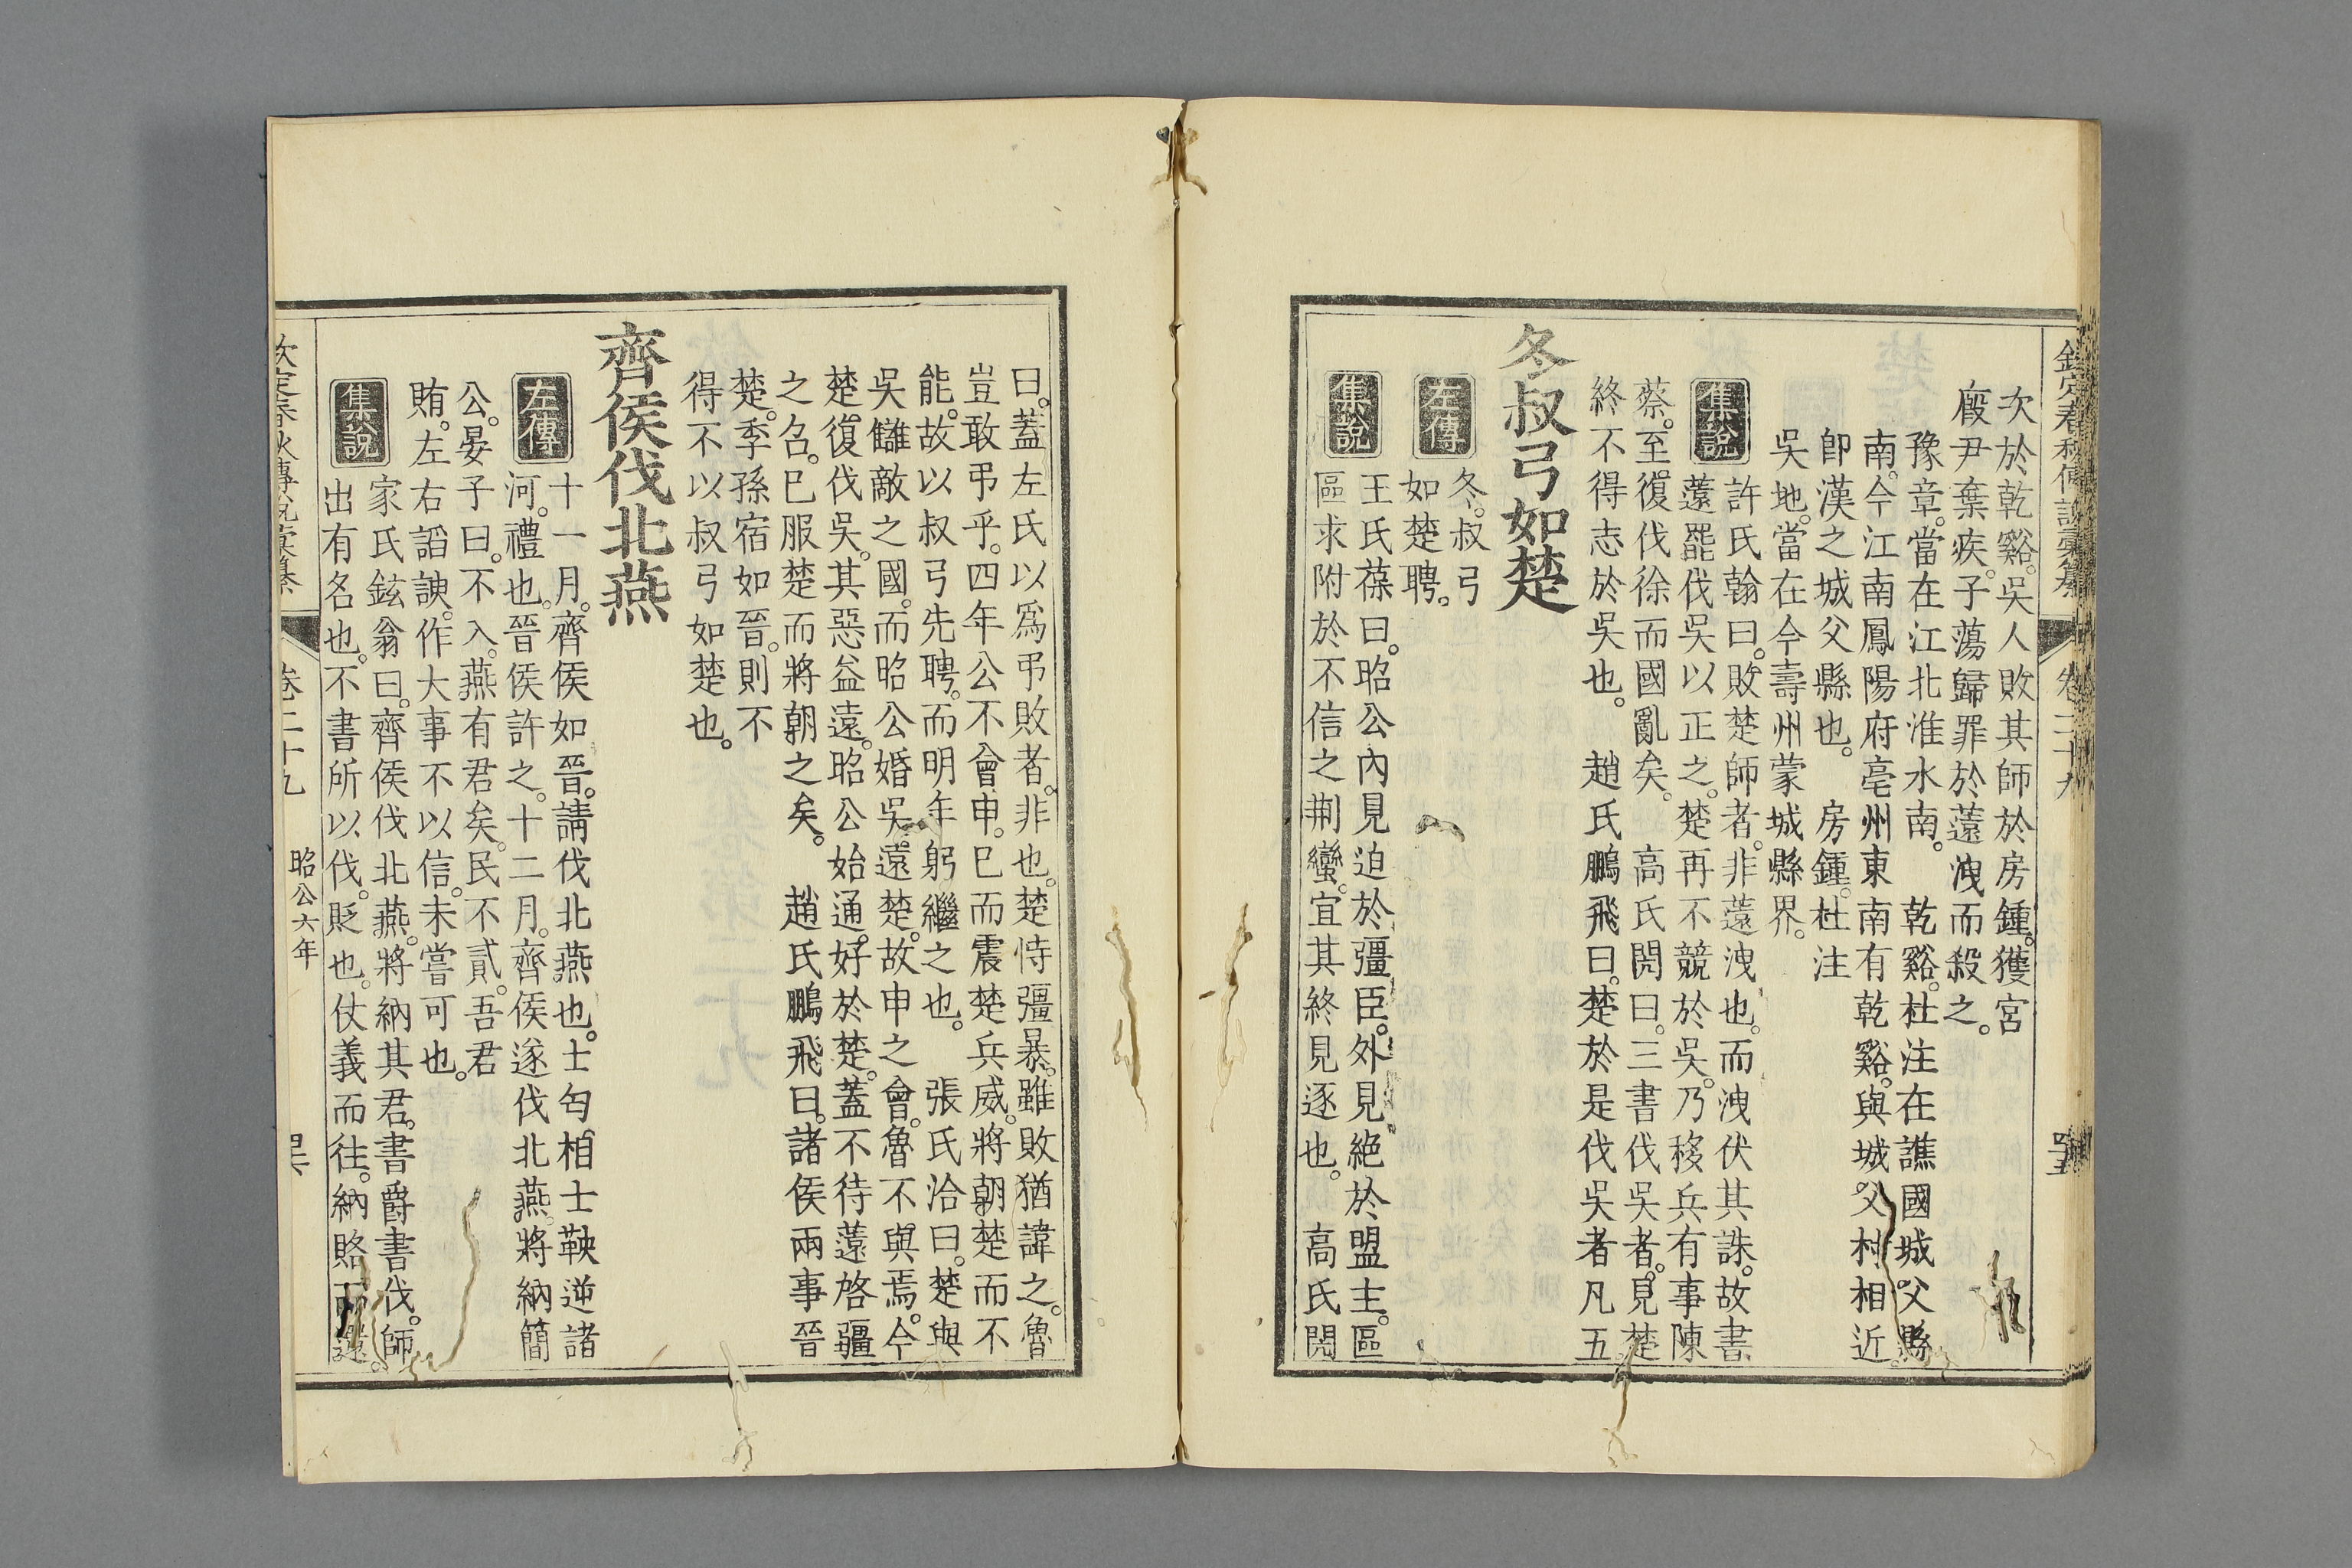 欽定春秋傳說彙纂 卷二十九
次於乾谿。吳人敗其師於房鍾。獲宮
廄尹棄疾。子蕩歸罪於薳洩而殺之。
豫章。當在江北淮水南。 乾谿。杜注在譙國城父縣
南。今江南鳳陽府亳州東南有乾谿。與城父村相近。
卽漢之城父縣也。 房鍾。杜注
吳地。當在今壽州蒙城縣界。
集說
許氏翰曰。敗楚師者。非薳洩也。而洩伏其誅。故書
薳罷伐吳以正之。楚再不競於吳。乃移兵有事陳
蔡。至復伐徐而國亂矣。 高氏閌曰。三書伐吳者。見楚
終不得志於吳也。 趙氏鵬飛曰。楚於是伐吳者凡五
冬叔弓如楚
左傳
冬。叔弓
如楚聘。
集說
王氏葆曰。昭公內見迫於彊臣。外見絕於盟主。區
區求附於不信之荆蠻。宜其終見逐也。 高氏閌
曰。蓋左氏以爲弔敗者。非也。楚恃彊暴。雖敗猶諱之。魯
豈敢弔乎。四年公不會申。已而震楚兵威。將朝楚而不
能。故以叔弓先聘。而明年躬繼之也。 張氏洽曰。楚與
吳讎敵之國。而昭公婚吳。遠楚。故申之會。魯不與焉。今
楚。復伐吳。其惡益遠。昭公始通。好於楚。蓋不待薳啓疆
之召。已服楚而將朝之矣。 趙氏鵬飛曰。諸侯兩事晉
楚。季孫宿如晉。則不
得不以叔弓如楚也。
齊侯伐北燕
左傳
十一月。齊侯如晉。請伐北燕也。士匄相士鞅逆諸
河。禮也。晉侯許之。十二月。齊侯遂伐北燕。將納簡
公。晏子曰。不入。燕有君矣。民不貳。吾君
賄。左右諂諛。作大事不以信。未嘗可也。
集說
家氏鉉翁曰。齊侯伐北燕。將納其君。書爵書伐。師
出有名也。不書所以伐。貶也。仗義而往。納賂而還。
欽定春秋傳說彙纂 卷二十九 昭公六年